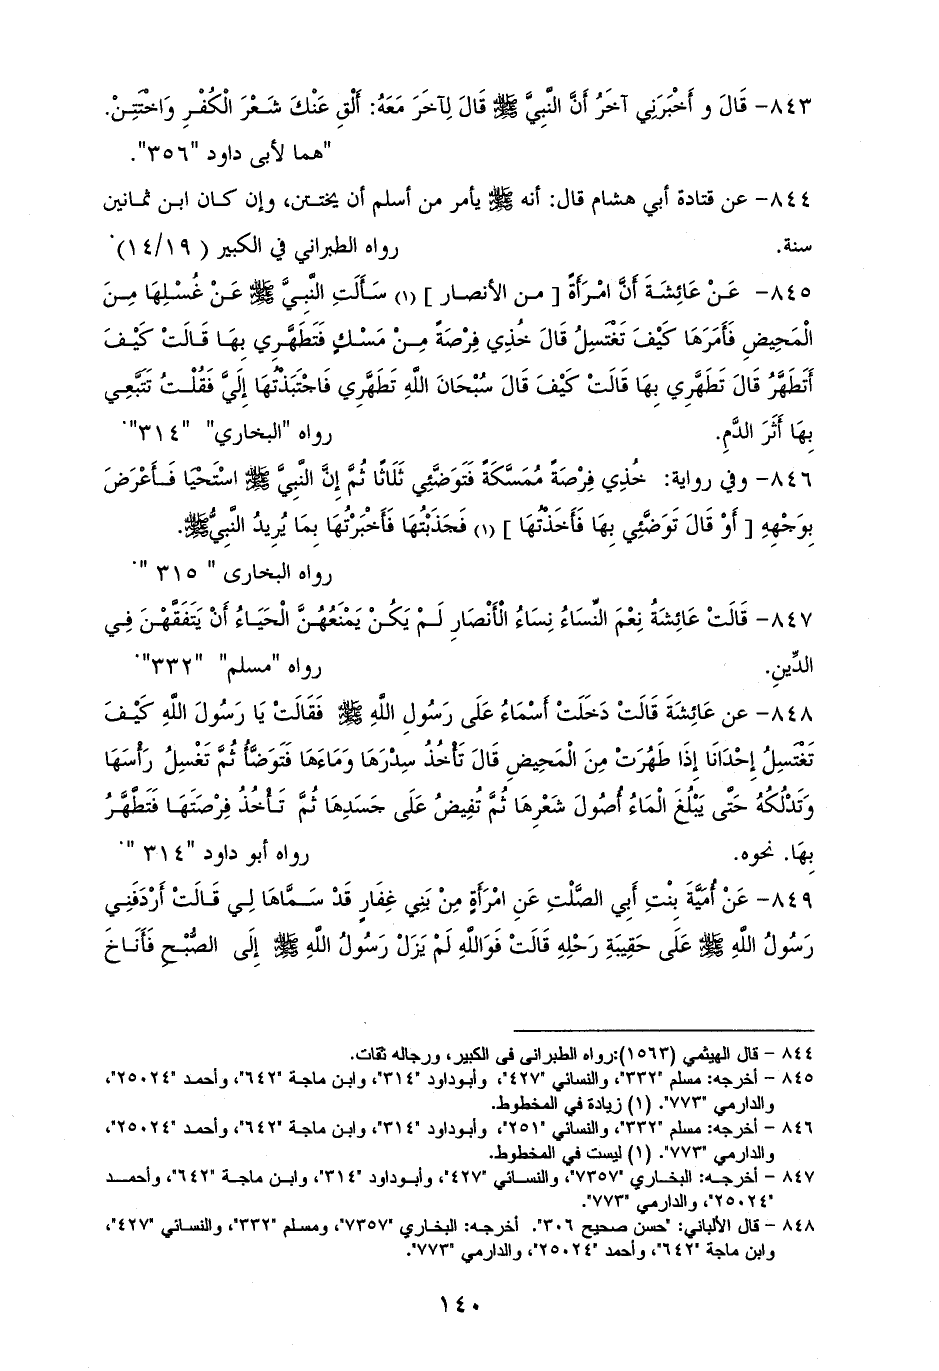 ٨٤٣- قَالَ و أَخْبَرَنِي آخَرُ أَنَّ النَّبِيَّ ﷺ قَالَ لِآخَرَ مَعَهُ: أَلْقِ عَنْكَ شَعْرَ الْكُفْرِ وَاخْتَتِنْ.
"هما لأبى داود "٣٥٦".
٨٤٤- عن قتادة أبي هشام قال: أنه ﷺ يأمر من أسلم أن يختتن، وإن كان ابن ثمانين
سنة. رواه الطبراني في الكبير ( ١٤/١٩)
٨٤٥- عَنْ عَائِشَةَ أَنَّ امْرَأَةً [ من الأنصار ] (١) سَأَلَتِ النَّبِيَّ ﷺ عَنْ غُسْلِهَا مِنَ
الْمَحِيضِ فَأَمَرَهَا كَيْفَ تَغْتَسِلُ قَالَ خُذِي فِرْصَةً مِنْ مَسْكٍ فَتَطَهَّرِي بِهَا قَالَتْ كَيْفَ
أَتَطَهَّرُ قَالَ تَطَهَّرِي بِهَا قَالَتْ كَيْفَ قَالَ سُبْحَانَ اللَّهِ تَطَهَّرِي فَاجْتَبَذْتُهَا إِلَيَّ فَقُلْتُ تَتَبَّعِي
بِهَا أَثَرَ الدَّمِ. رواه "البخاري" "٣١٤".
٨٤٦- وفي رواية: خُذِي فِرْصَةً مُمَسَّكَةً فَتَوَضَّئِي ثَلَاثًا ثُمَّ إِنَّ النَّبِيَّ ﷺ اسْتَحْيَا فَأَعْرَضَ
بِوَجْهِهِ [ أَوْ قَالَ تَوَضَّئِي بِهَا فَأَخَذْتُهَا ] (١) فَجَذَبْتُهَا فَأَخْبَرْتُهَا بِمَا يُرِيدُ النَّبِيُّ ﷺ.
رواه البخارى " ٣١٥ ".
٨٤٧- قَالَتْ عَائِشَةُ نِعْمَ النِّسَاءُ نِسَاءُ الْأَنْصَارِ لَمْ يَكُنْ يَمْنَعُهُنَّ الْحَيَاءُ أَنْ يَتَفَقَّهْنَ فِي
الدِّينِ. رواه "مسلم" "٣٣٢".
٨٤٨- عن عَائِشَةَ قَالَتْ دَخَلَتْ أَسْمَاءُ عَلَى رَسُولِ اللَّهِ ﷺ فَقَالَتْ يَا رَسُولَ اللَّهِ كَيْفَ
تَغْتَسِلُ إِحْدَانَا إِذَا طَهُرَتْ مِنَ الْمَحِيضِ قَالَ تَأْخُذُ سِدْرَهَا وَمَاءَهَا فَتَوَضَّأُ ثُمَّ تَغْسِلُ رَأْسَهَا
وَتَدْلُكُهُ حَتَّى يَبْلُغَ الْمَاءُ أُصُولَ شَعْرِهَا ثُمَّ تُفِيضُ عَلَى جَسَدِهَا ثُمَّ تَأْخُذُ فِرْصَتَهَا فَتَطَّهَّرُ
بِهَا. نحوه. رواه أبو داود "٣١٤ ".
٨٤٩- عَنْ أُمَيَّةَ بِنْتِ أَبِي الصَّلْتِ عَنِ امْرَأَةٍ مِنْ بَنِي غِفَارٍ قَدْ سَمَّاهَا لِي قَالَتْ أَرْدَفَنِي
رَسُولُ اللَّهِ ﷺ عَلَى حَقِيبَةِ رَحْلِهِ قَالَتْ فَوَاللَّهِ لَمْ يَزَلْ رَسُولُ اللَّهِ ﷺ إِلَى الصُّبْحِ فَأَنَاخَ
٨٤٤ - قال الهيثمي (١٥٦٣):رواه الطبرانى فى الكبير، ورجاله ثقات.
٨٤٥ - أخرجه: مسلم "٣٣٢"، والنسائي "٤٢٧"، وأبوداود "٣١٤"، وابن ماجة "٦٤٢"، وأحمد "٢٥٠٢٤"،
والدارمي "٧٧٣". (١) زيادة في المخطوط.
٨٤٦ - أخرجه: مسلم "٣٣٢"، والنسائي "٢٥١"، وأبوداود "٣١٤"، وابن ماجة "٦٤٢"، وأحمد "٢٥٠٢٤"،
والدارمي "٧٧٣". (١) ليست في المخطوط.
٨٤٧ - أخرجه: البخاري "٧٣٥٧"، والنسائي "٤٢٧"، وأبوداود "٣١٤"، وابن ماجة "٦٤٢"، وأحمد
"٢٥٠٢٤"، والدارمي "٧٧٣".
٨٤٨ - قال الألباني: "حسن صحيح ٣٠٦". أخرجه: البخاري "٧٣٥٧"، ومسلم "٣٣٢"، والنسائي "٤٢٧"،
وابن ماجة "٦٤٢"، وأحمد "٢٥٠٢٤"، والدارمي "٧٧٣".
١٤٠